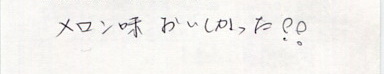 メロン味 おいしかった!!